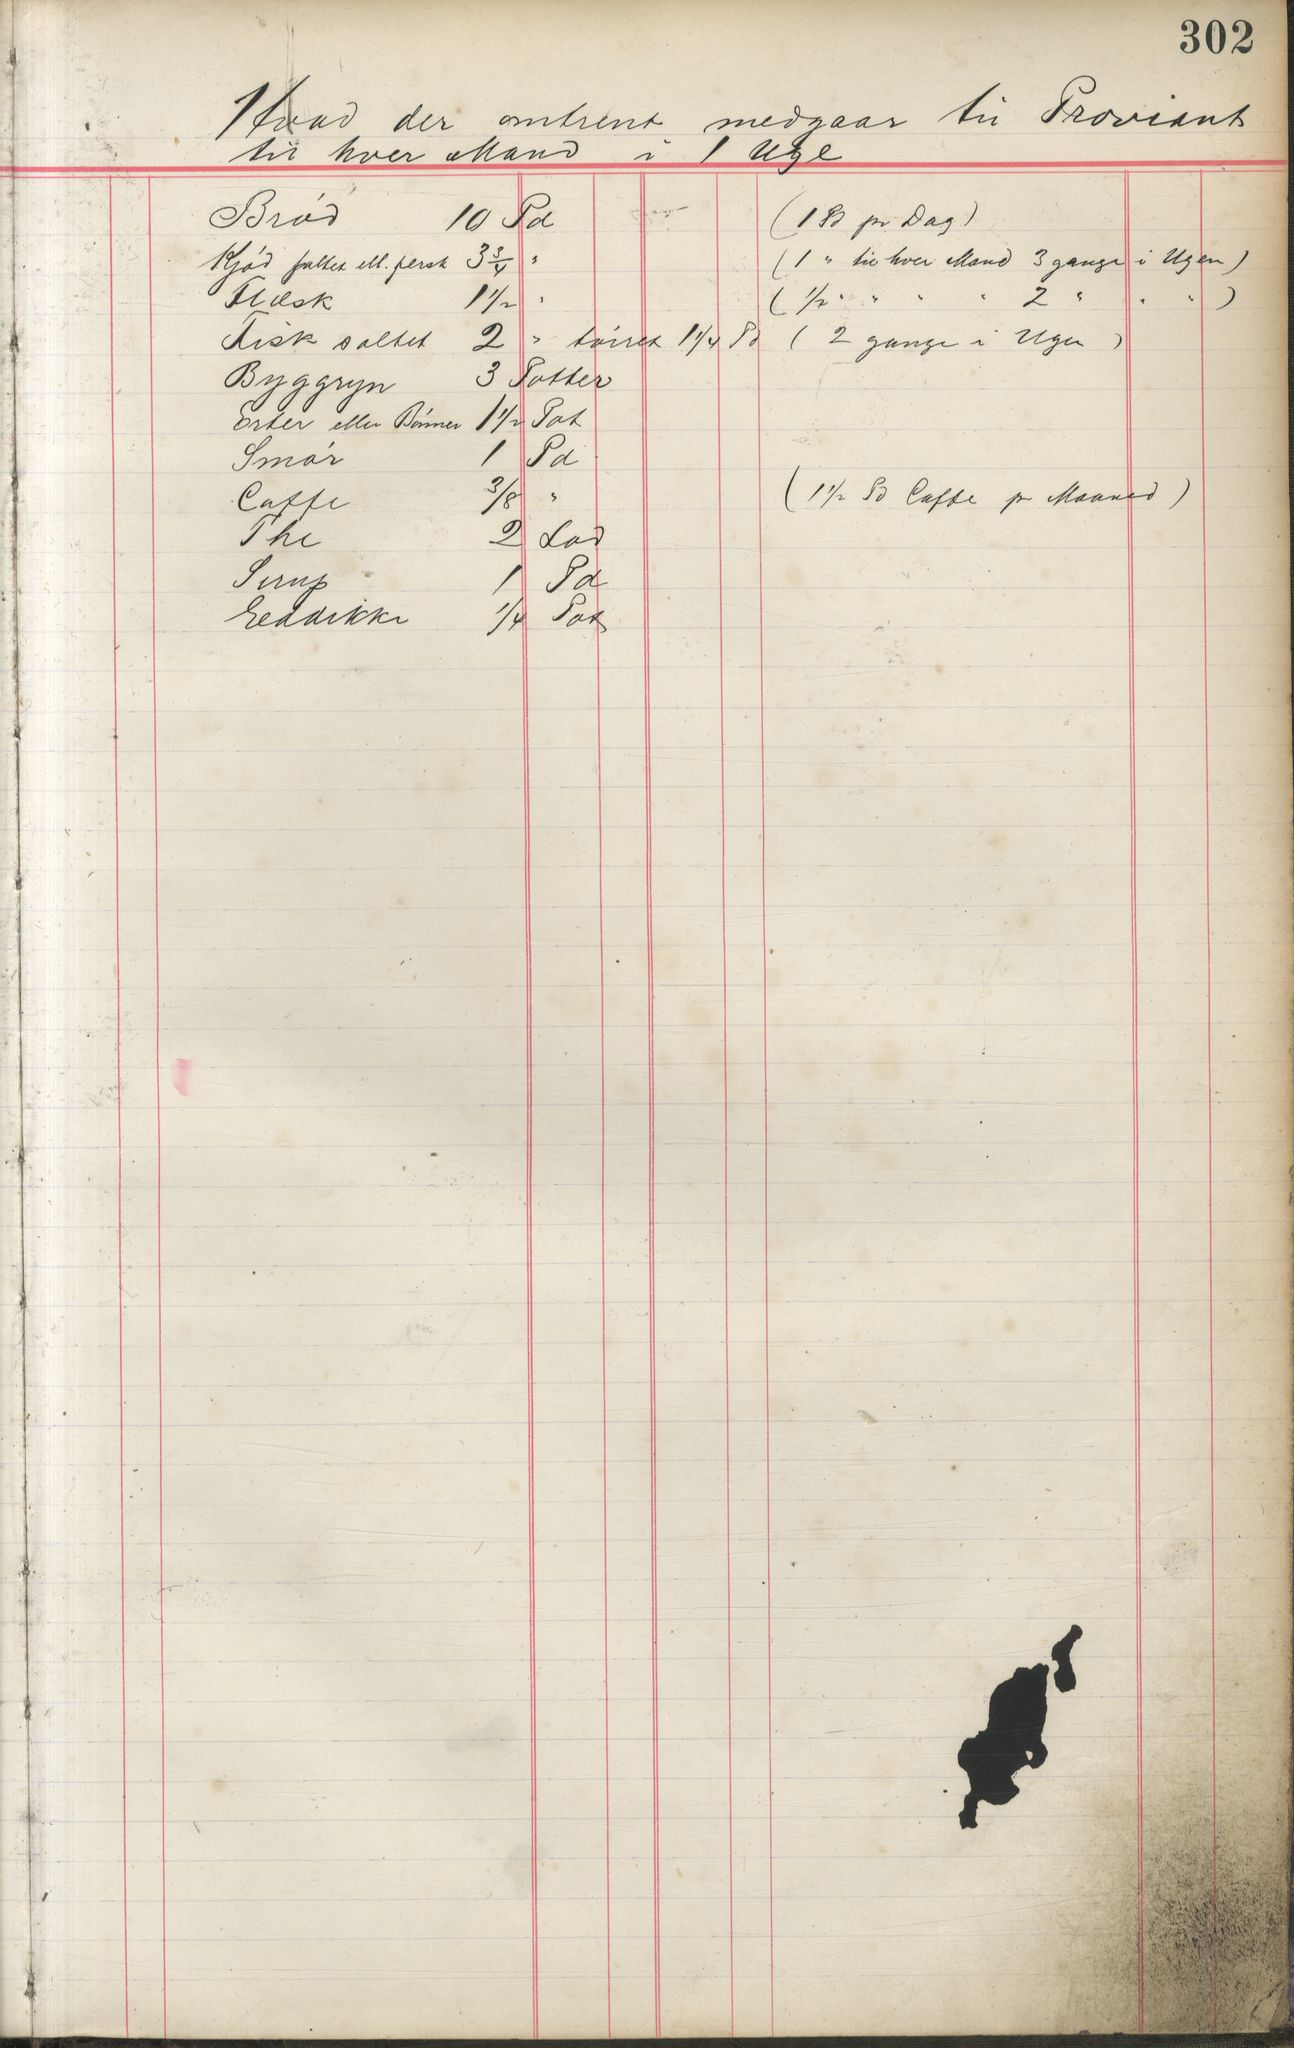 302
Hvad der omtrent medgaar til Proviant
til hver Mand i 1 Uge
Brød 10 Pd (1 Pd pr Dag)
Kjød saltet ell. fersk 3 3/4 " (1 " til hver Mand 3 gange i Ugen)
Flæsk 1 1/2 " (1/2 " " " " 2 " " ")
Fisk saltet 2 " tørret 1 1/4 Pd (2 gange i Ugen)
Byggryn 3 Potter
Erter eller Bønner 1 1/2 Pot
Smør 1 Pd
Caffe 3/8 " (1 1/2 Pd Caffe pr Maaned)
The 2 Lod
Sirup 1 Pd
Eddikke 1/4 Pot